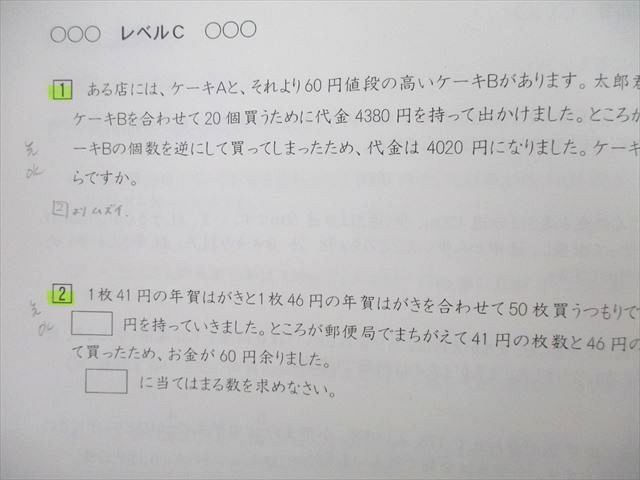 ○○○ レベルC ○○○
1 ある店には、ケーキAと、それより60円値段の高いケーキBがあります。太郎
ケーキBを合わせて20個買うために代金4380円を持って出かけました。ところが
ーキBの個数を逆にして買ってしまったため、代金は4020円になりました。ケーキ
らですか。
OK
2よりムズイ.
2 1枚41円の年賀はがきと1枚46円の年賀はがきを合わせて50枚買うつもりで
□円を持っていきました。ところが郵便局でまちがえて41円の枚数と46円の
OK
て買ったため、お金が60円余りました。
□に当てはまる数を求めなさい。